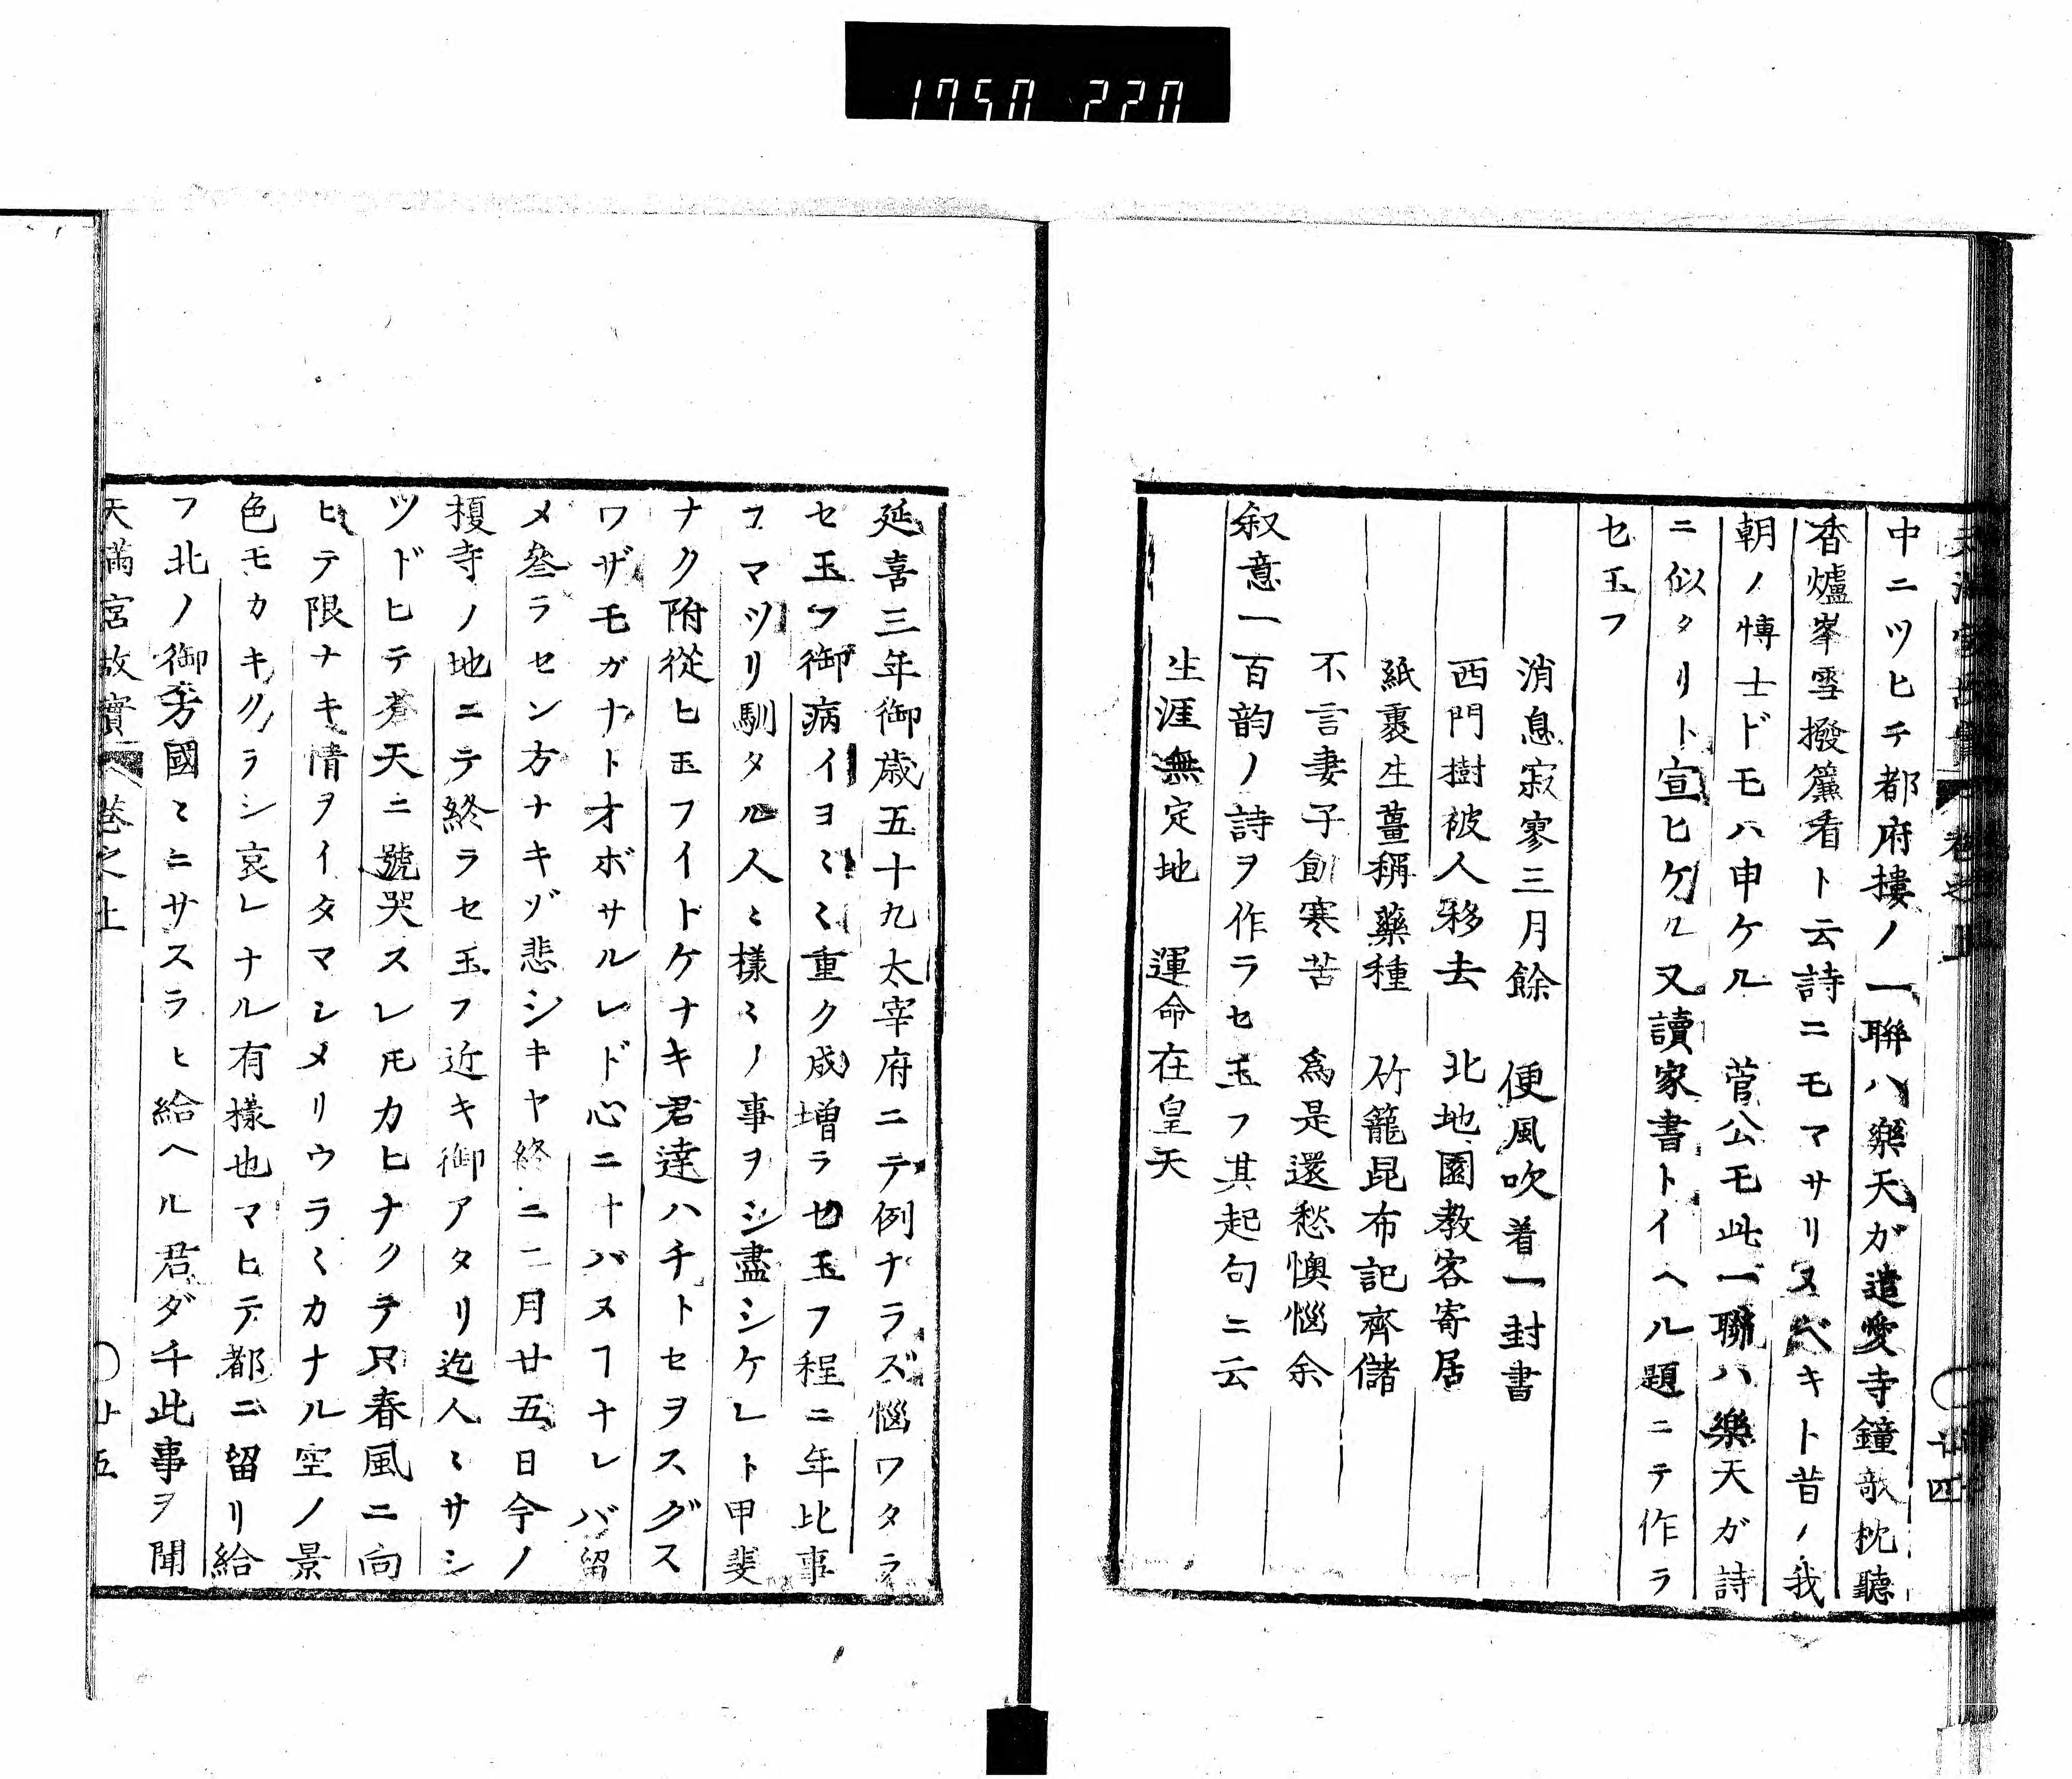 1750 220
中ニツヒテ都府摟ノ一聯ハ樂天ガ遺愛寺鐘敧枕聽
香爐峯雪撥簾看ト云詩ニモマサリヌベキト昔ノ我
朝ノ博士ドモハ申ケル 菅公モ此一聯ハ樂天ガ詩
ニ似タリト宣ヒケル又讀家書トイヘル題ニテ作ラ
セ玉フ
消息寂寥三月餘 便風吹着一封書
西門樹被人移去 北地園教客寄居
紙裹生薑稱藥種 竹籠昆布記齊儲
不言妻子飢寒苦 為是還愁懊惱余
叙意一百韵ノ詩ヲ作ラセ玉フ其起句ニ云
生涯無定地 運命在皇天
延喜三年御歳五十九太宰府ニテ例ナラズ惱ワタラ
セ玉フ御病イヨミミ重ク成増ラセ玉フ程ニ年比事
フマツリ馴タル人ミ樣ミノ事ヲシ盡シケレト甲斐
ナク附從ヒ玉フイトケナキ君達ハチトセヲスグス
ワザモガナト才ボサルレド心ニナバヌヿナレバ留
メ叅ラセン方ナキゾ悲シキヤ終ニ二月廿五日今ノ
榎寺ノ地ニテ終ラセ玉フ近キ御アタリ迄人ミサシ
ツドヒテ蒼天ニ號哭スレ𪜈カヒナクテ只春風ニ向
ヒテ限ナキ情ヲイタマシメリウラミカナル空ノ景
色モカキクラシ哀レナル有樣也マヒテ都ニ留リ給
フ北ノ御方國ミニサスラヒ給ヘル君ダチ此事ヲ聞
天滿宮故實 巻之上 廿五